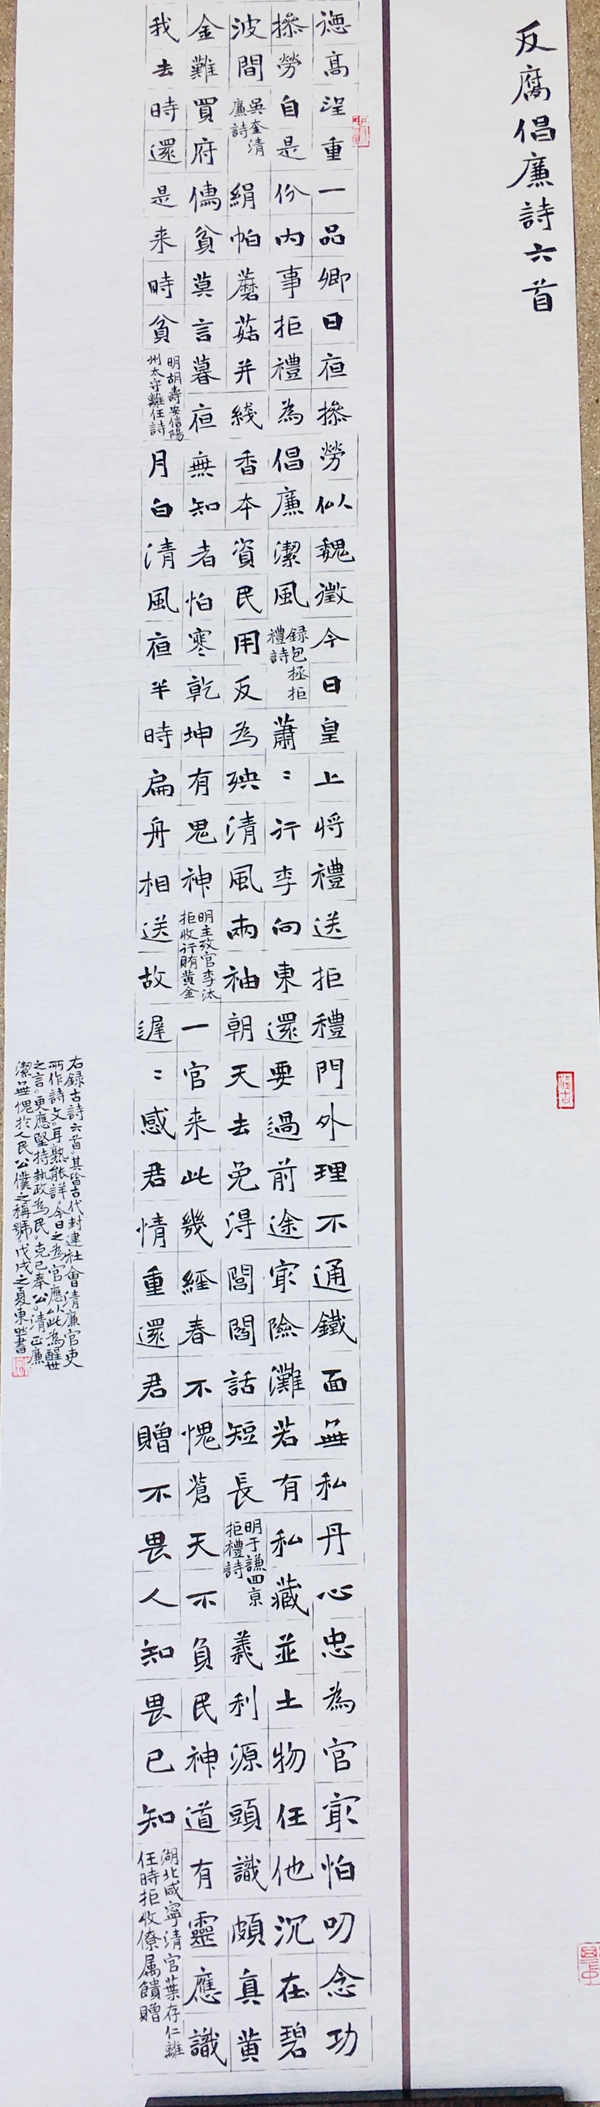 反腐倡廉詩六首
德高望重一品卿日夜操勞似魏徵今日皇上將禮送拒禮門外理不通鐵面無私丹心忠為官最怕叨念功
操勞自是份內事拒禮為倡廉潔風
録包拯拒
禮詩
蕭〻行李向東還要過前途最險灘若有私藏並土物任他沉在碧
波間
吳奎清
廉詩
絹帕蘑菇并綫香本資民用反為殃清風兩袖朝天去免得閭閻話短長
明于謙四京
拒禮詩
義利源頭識頗真黄
金難買府儒貧莫言暮夜無知者怕寒乾坤有鬼神
明主政官李汰
拒收行賄黄金
一官来此幾經春不愧蒼天不負民神道有靈應識
我去時還是来時貧
明胡壽安信陽
州太守離任詩
月白清風夜半時扁舟相送故遲〻感君情重還君贈不畏人知畏己知
湖北咸寧清官葉存仁離
任時拒收僚属饋贈
右録古詩六首其皆古代封建社會清廉官吏
所作詩文耳熟能詳今日之為官應以此為醒世
之言更應堅持執政為民克己奉公清正廉
潔無愧於人民公僕之稱號戊戌之夏東書